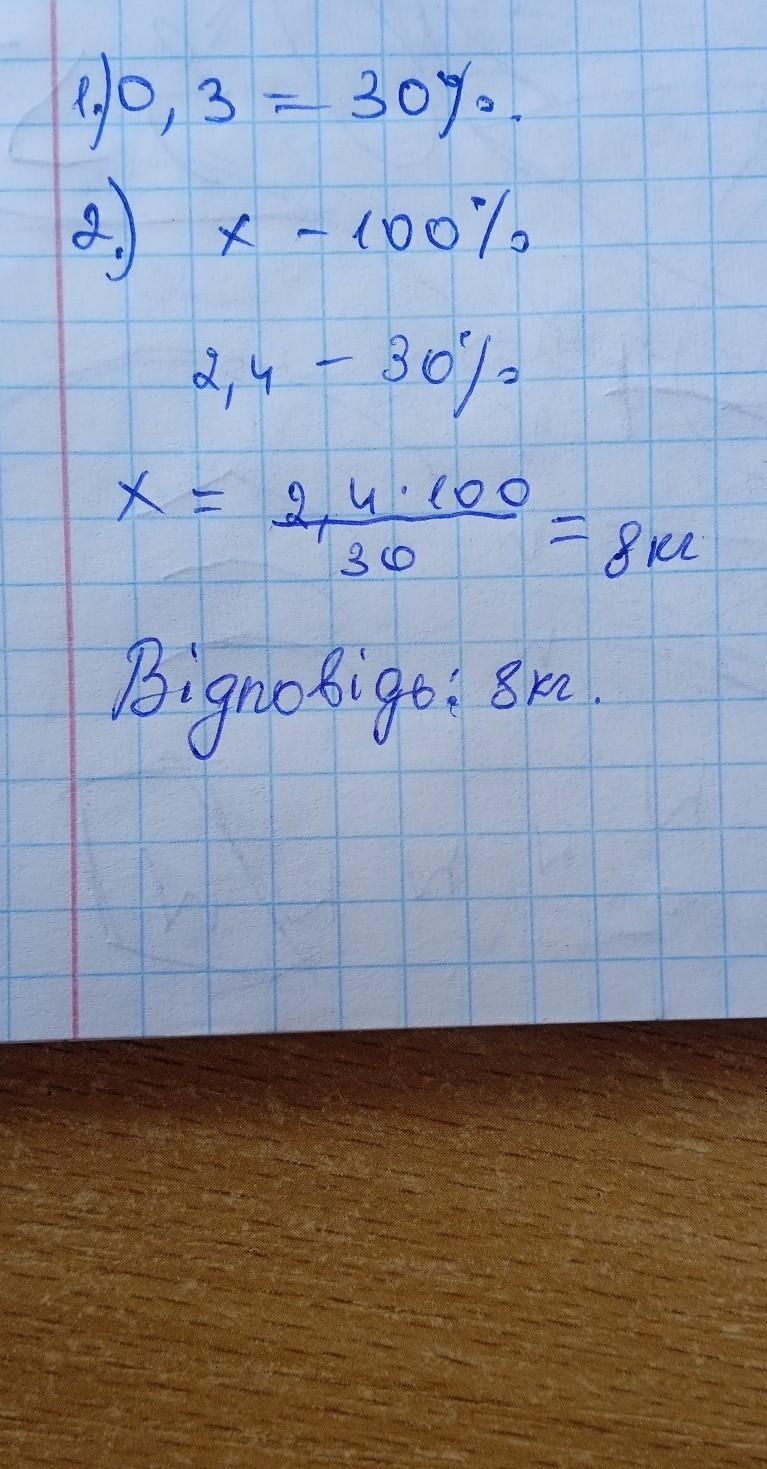 1.) 0,3 = 30%.
2.) x - 100%
2,4 - 30%
x = 2,4·100/30 = 8кг
Відповідь: 8кг.